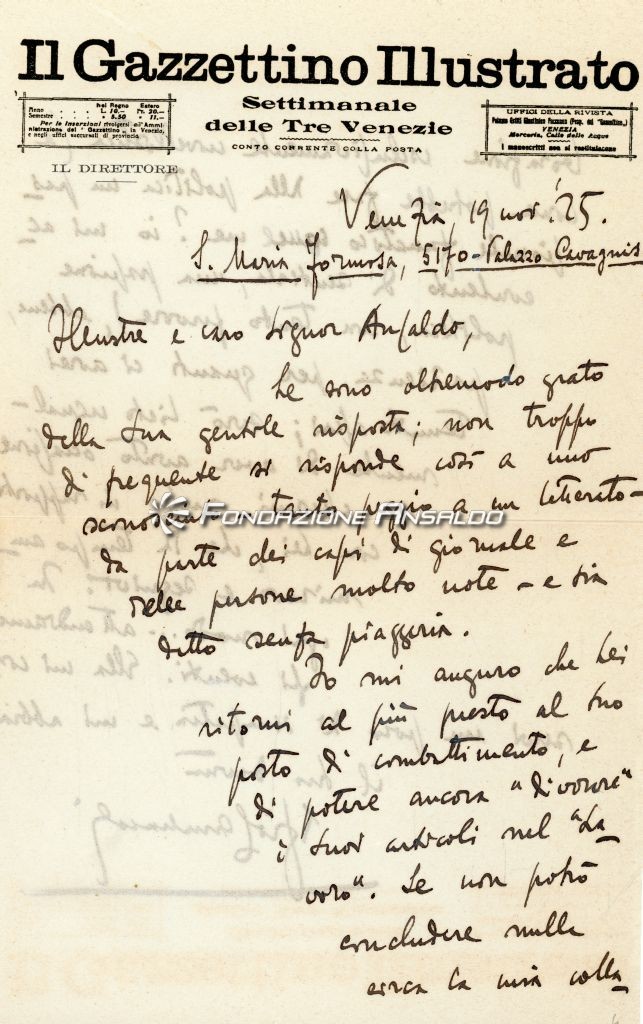 Il Gazzettino Illustrato
Settimanale
delle Tre Venezie
CONTO CORRENTE COLLA POSTA
Nel Regno Estero
Anno . . . . . L. 10.— Fr. 20.—
Semestre . . . . » 5.50 » 11.—
Per le inserzioni rivolgersi all'Am-
ministrazione del "Gazzettino" in Venezia,
e negli uffici succursali di provincia.
UFFICI DELLA RIVISTA
VENEZIA
Merceria, Calle delle Acque
I manoscritti non si restituiscono
IL DIRETTORE
Venezia, 19 nov. '25.
S. Maria Formosa, 5170 - Palazzo Cavagnis
Illustre e caro Signor Ansaldo,
Le sono oltremodo grato
della Sua gentile risposta; non troppo
di frequente si risponde così a uno
sconosciuto - tanto peggio a un letterato -
da parte dei capi di giornale e
delle persone molto note - e sia
detto senza piaggeria.
Io mi auguro che Lei
ritorni al più presto al Suo
posto di combattimento, e
di potere ancora "divorare"
i Suoi articoli nel "La-
voro". Se non potrò
concludere nulla
circa la mia colla-
FONDAZIONE ANSALDO